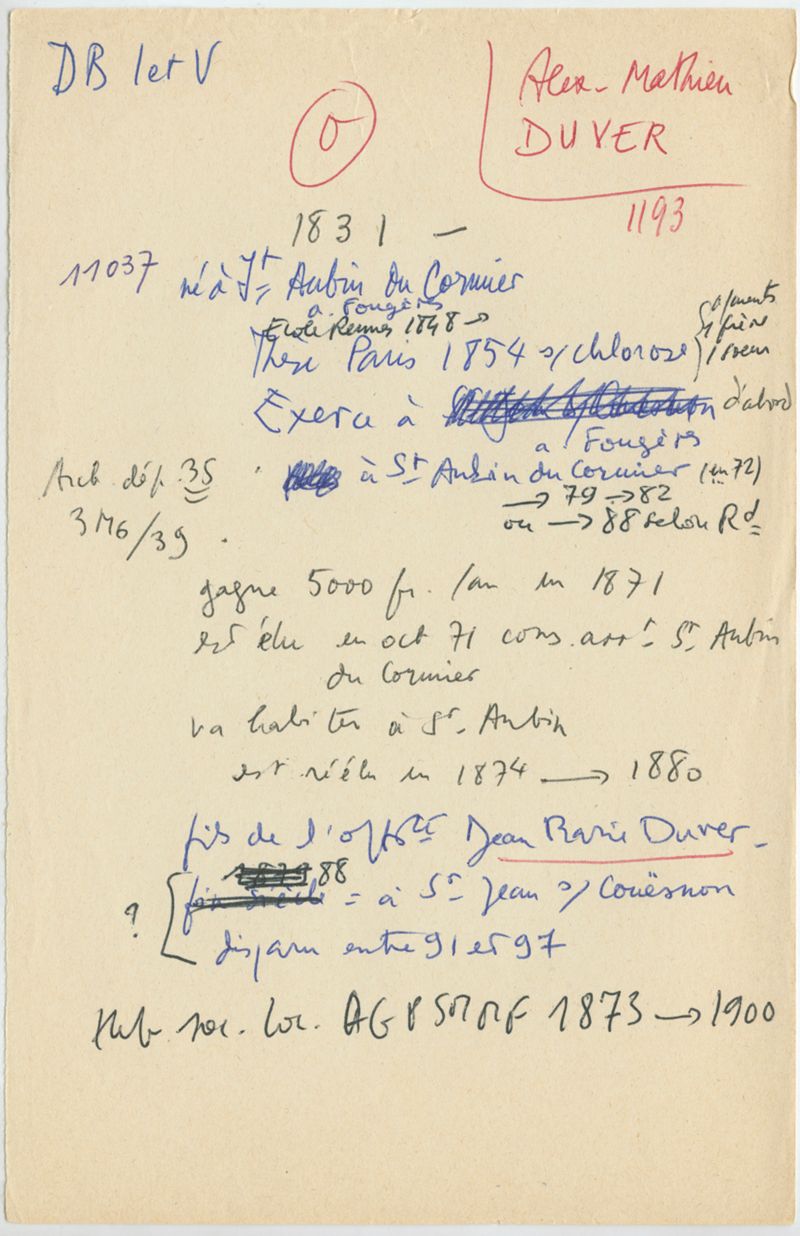 DB I et V
Alex-Mathieu
DUVER
O
1193
1831 —
11037 né à St Aubin du Cormier
a. Fougères
Ecole Rennes 1848 →
Thèse Paris 1854 s/ chlorose
parents
1 frère
1 soeur
Exerce à d'abord
a. Fougères
à St Aubin du Cormier (en 72)
Arch. dép. 35
3M6/39
→ 79 → 82
ou → 88 selon Rd
gagne 5000 fr. /an en 1871
est élu en oct 71 cons. arrt St Aubin
du Cormier
va habiter à St. Aubin
est réélu en 1874 → 1880
fils de l'off. Jean Marie Duver -
88
? = à St Jean s/ Couësnon
disparu entre 91 et 97
soc. loc. 1873 → 1900